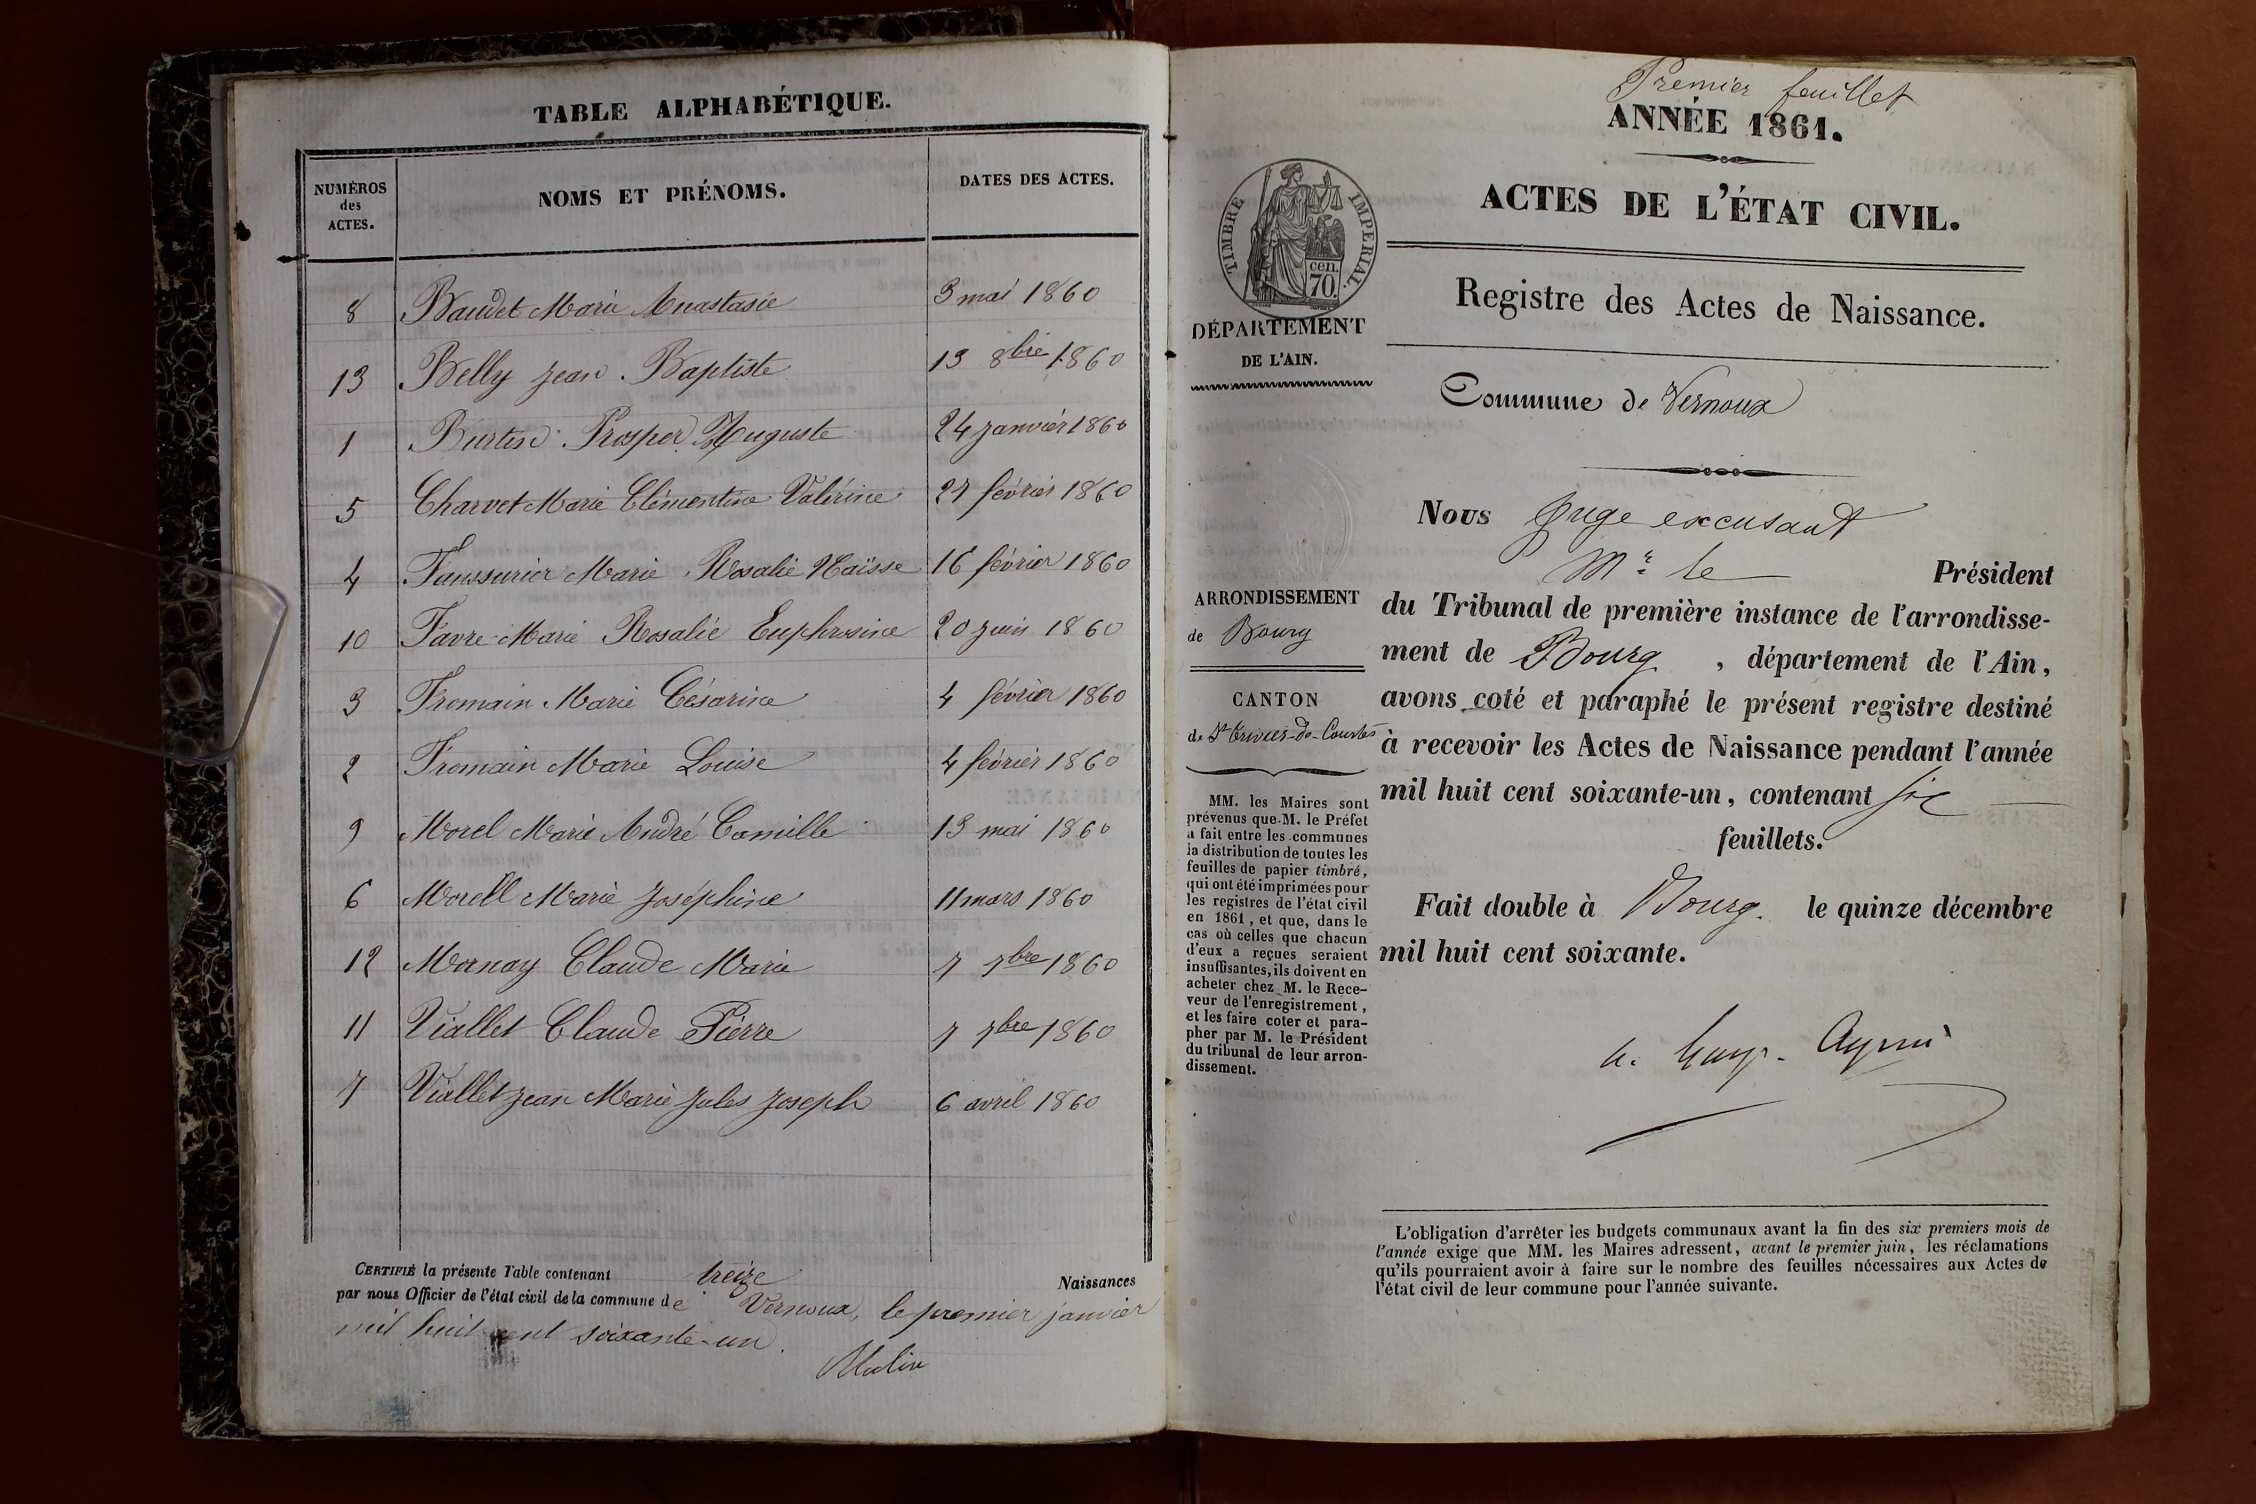 TABLE ALPHABÉTIQUE.
NUMÉROS des ACTES.
NOMS ET PRÉNOMS.
DATES DES ACTES.
8 Baudet Marie Anastasie 3 mai 1860
13 Belly Jean Baptiste 13 8bre 1860
1 Burtin Prosper Auguste 24 janvier 1860
5 Charvet Marie Clémentine Valérine 27 février 1860
4 Faussurier Marie Rosalie Naïsse 16 février 1860
10 Favre Marie Rosalie Euphrosine 20 juin 1860
3 Fromain Marie Césarine 4 février 1860
2 Fromain Marie Louise 4 février 1860
9 Morel Marie André Camille 13 mai 1860
6 Morell Marie Joséphine 11 mars 1860
12 Mornay Claude Marie 7 7bre 1860
11 Viallet Claude Pierre 7 7bre 1860
7 Viallet Jean Marie Jules Joseph 6 avril 1860
CERTIFIÉ la présente Table contenant treize Naissances
par nous Officier de l'état civil de la commune de Vernoux, le premier janvier
mil huit cent soixante-un.
Premier feuillet
ANNÉE 1861.
ACTES DE L'ÉTAT CIVIL.
Registre des Actes de Naissance.
TIMBRE IMPERIAL.
cen.
70.
DÉPARTEMENT
DE L'AIN.
Commune de Vernoux
ARRONDISSEMENT
de Bourg
CANTON
de St Trivier-de-Courtes
MM. les Maires sont
prévenus que M. le Préfet
a fait entre les communes
la distribution de toutes les
feuilles de papier timbré,
qui ont été imprimées pour
les registres de l'état civil
en 1861, et que, dans le
cas où celles que chacun
d'eux a reçues seraient
insuffisantes, ils doivent en
acheter chez M. le Rece-
veur de l'enregistrement,
et les faire coter et para-
pher par M. le Président
du tribunal de leur arron-
dissement.
Nous Juge excusant
Mr le Président
du Tribunal de première instance de l'arrondisse-
ment de Bourg, département de l'Ain,
avons coté et paraphé le présent registre destiné
à recevoir les Actes de Naissance pendant l'année
mil huit cent soixante-un, contenant six
feuillets.
Fait double à Bourg. le quinze décembre
mil huit cent soixante.
L'obligation d'arrêter les budgets communaux avant la fin des six premiers mois de
l'année exige que MM. les Maires adressent, avant le premier juin, les réclamations
qu'ils pourraient avoir à faire sur le nombre des feuilles nécessaires aux Actes de
l'état civil de leur commune pour l'année suivante.